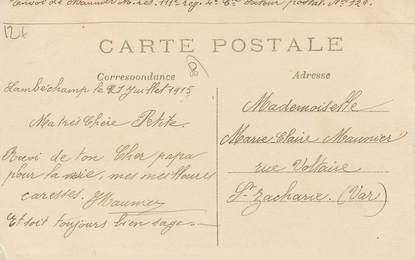 Envoi de Maunier 111e reg. 4e Cie Secteur postal. No 129.
12f
CARTE POSTALE
Correspondance
Adresse
Lambéchamp le 27 juillet 1915
Ma très Chère Petite.
Reçoi de ton Cher papa
pour la vie, mes meilleures
caresses. Maunier
Et soit toujours bien sage.
Mademoiselle
Marie Claire Maunier
rue Voltaire
St Zacharie. (Var)